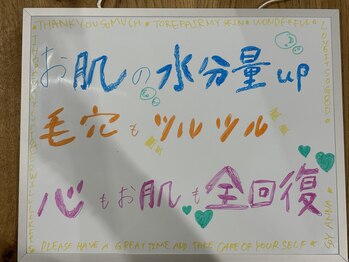 THANK YOU SO MUCH ★ TO REPAIR MY SKIN ★ WONDERFUL
お肌の水分量up
毛穴もツルツル
心もお肌も全回復
PLEASE HAVE A GREAT TIME AND TAKE CARE OF YOURSELF